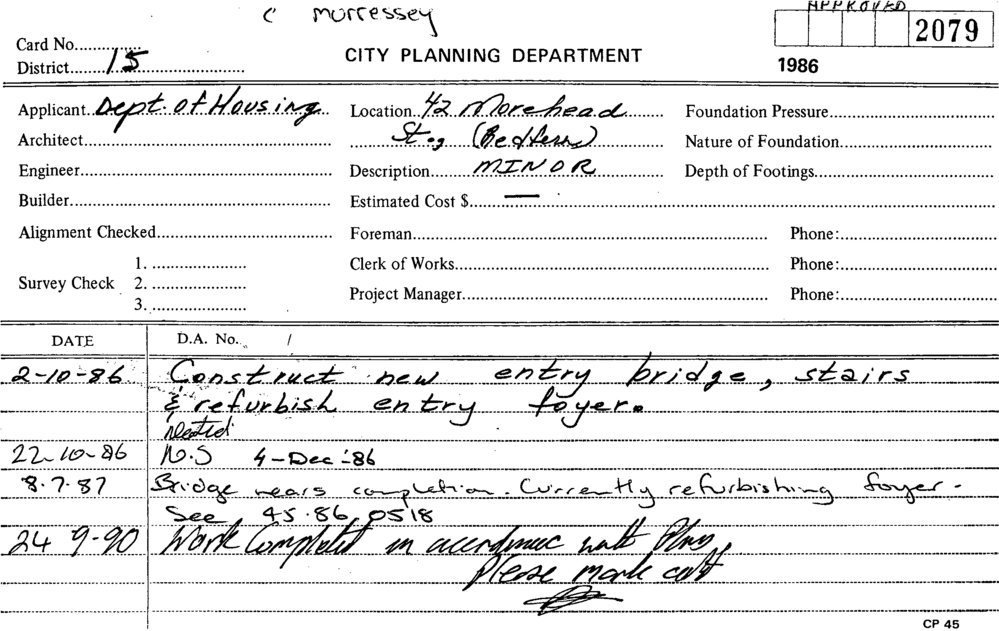 C Morressey
APPROVED
2079
1986
Card No.
District 15
CITY PLANNING DEPARTMENT
Applicant Dept. of Housing
Location 42 Morehead
Foundation Pressure
Architect
St., (Redfern)
Nature of Foundation
Engineer
Description MINOR
Depth of Footings
Builder
Estimated Cost $ —
Alignment Checked
Foreman
Phone:
Survey Check
1.
2.
3.
Clerk of Works
Phone:
Project Manager
Phone:
DATE
D.A. No. /
2-10-86 Construct new entry bridge, stairs
& refurbish entry foyer.
22-10-86 N.S 4-Dec-'86
8.7.87 Bridge nears completion. Currently refurbishing foyer -
See 45.86.0518
24 9-90 Work Completed in accordance with Plans
Please mark
CP 45